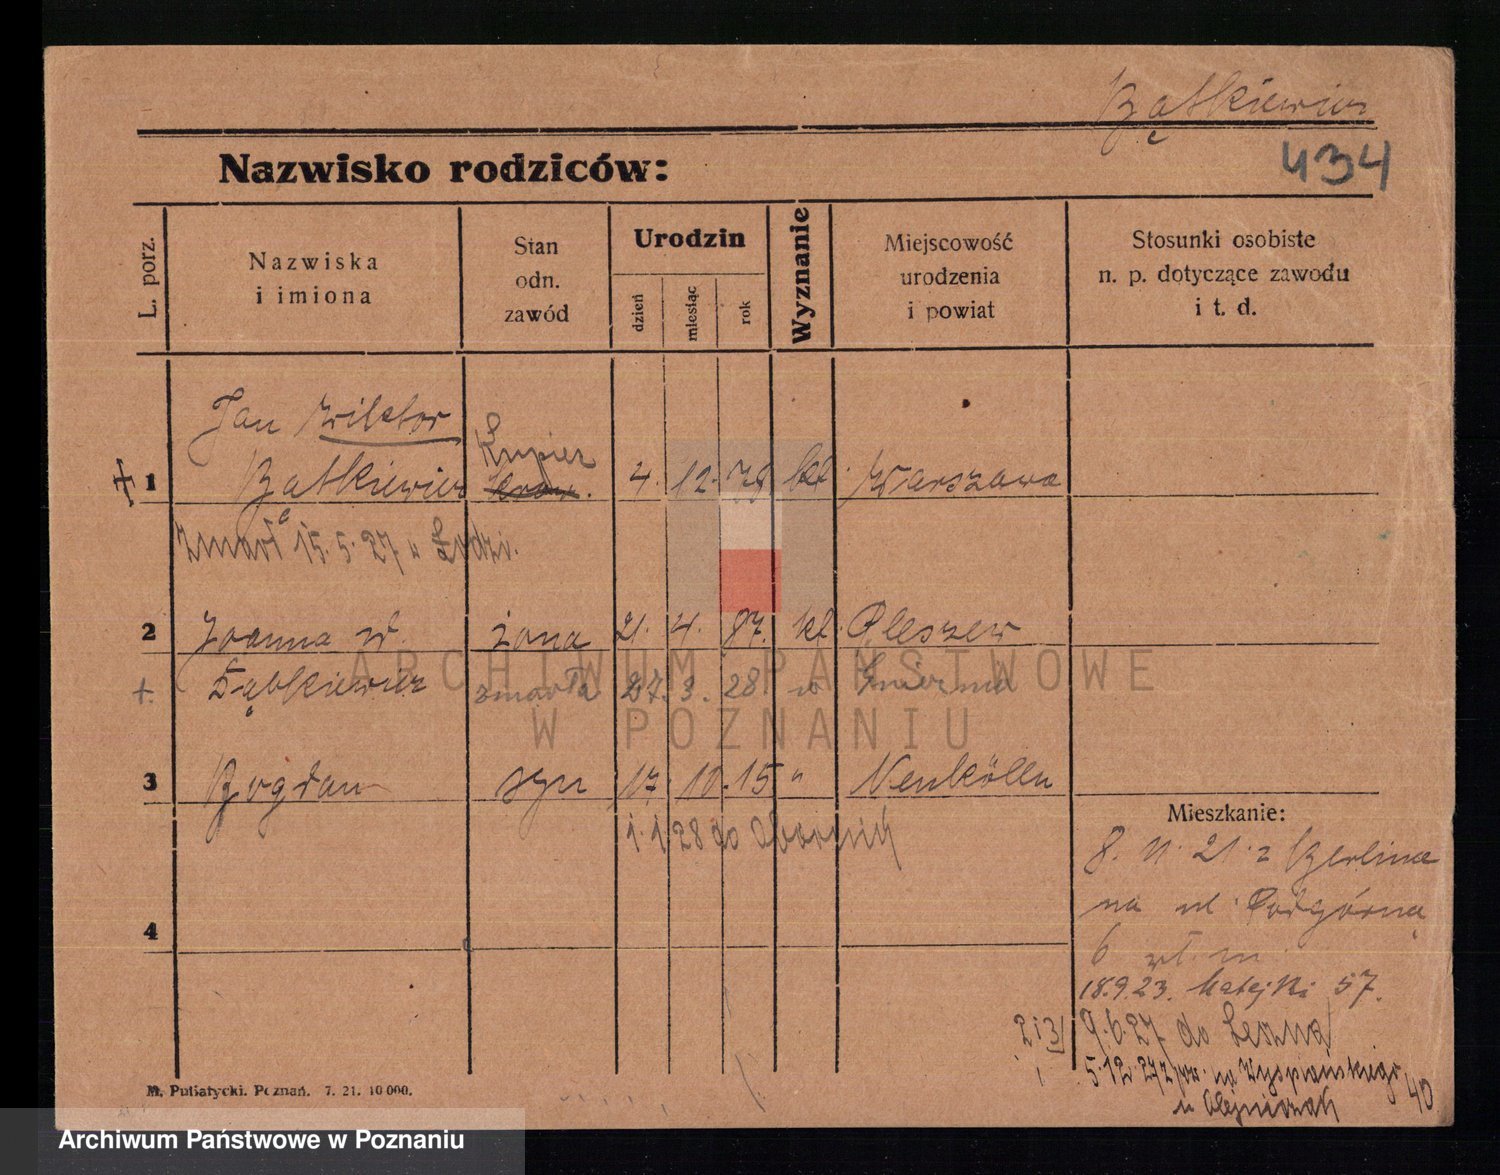 Bątkiewicz
434
Nazwisko rodziców:
L. porz.
Nazwiska
i imiona
Stan
odn.
zawód
Urodzin
dzień
miesiąc
rok
Wyznanie
Miejscowość
urodzenia
i powiat
Stosunki osobiste
n. p. dotyczące zawodu
i t. d.
Jan Wiktor
Kupiec
1 Bątkiewicz 4. 12. 78 kt. Warszawa
zmarł 15.5.27 w Łodzi.
2 Joanna żona 21. 4. 87. kt. Pleszew
Bątkiewicz zmarła 27. 3. 28 w
3 Bogdan syn 17. 10. 15 " Neukölln
1. 1. 28 do Obornik
4
Mieszkanie:
8. 11. 21 z Berlina
na ul. Podgórną
6 wł. m
18.9.23. Matejki 57.
2 i 3/ 9.6.27 do Leszna
5.12.27 na Wyspiańskiego 40
u Olejniczak
M. Putiatycki. Poznań. 7. 21. 10 000.
ARCHIWUM PAŃSTWOWE
W POZNANIU
Archiwum Państwowe w Poznaniu